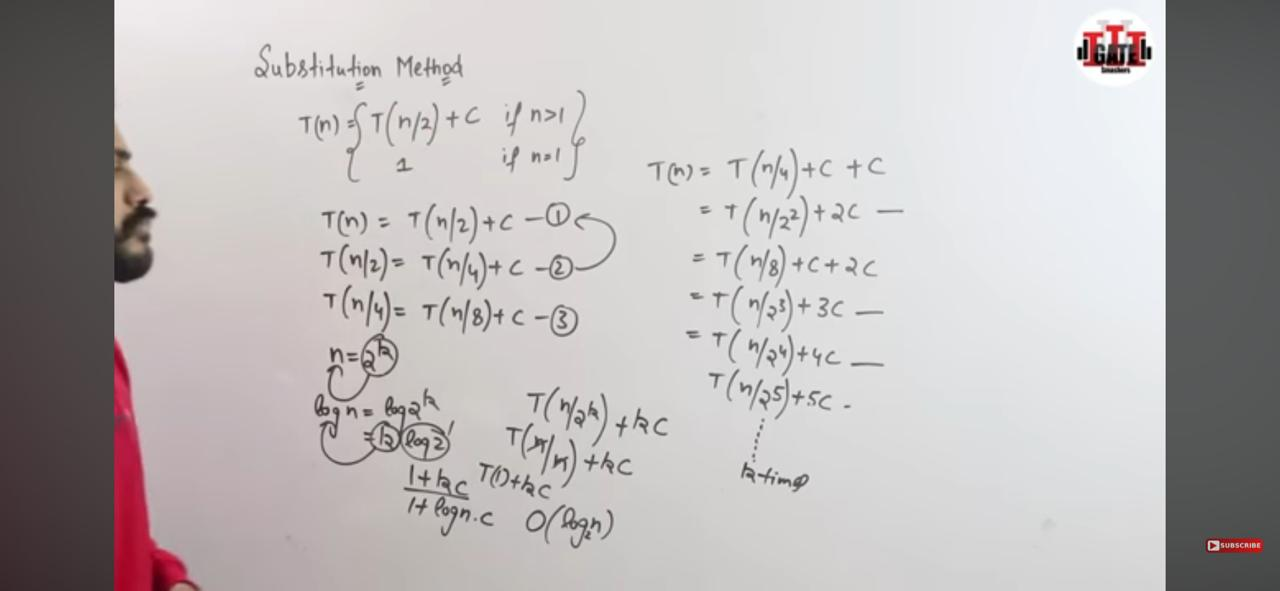 Substitution Method
T(n) = { T(n/2) + C if n>1
1 if n=1 }
T(n) = T(n/2) + C - ①
T(n/2) = T(n/4) + C - ②
T(n/4) = T(n/8) + C - ③
n = 2^k
log n = log 2^k
= k log 2 1
1 + kC
1 + log n . C
T(n/2^k) + kC
T(n/n) + kC
T(1) + kC
O(log₂n)
T(n) = T(n/4) + C + C
= T(n/2²) + 2C —
= T(n/8) + C + 2C
= T(n/2³) + 3C —
= T(n/2⁴) + 4C —
T(n/2⁵) + 5C -
k-times
GATE
Smashers
SUBSCRIBE